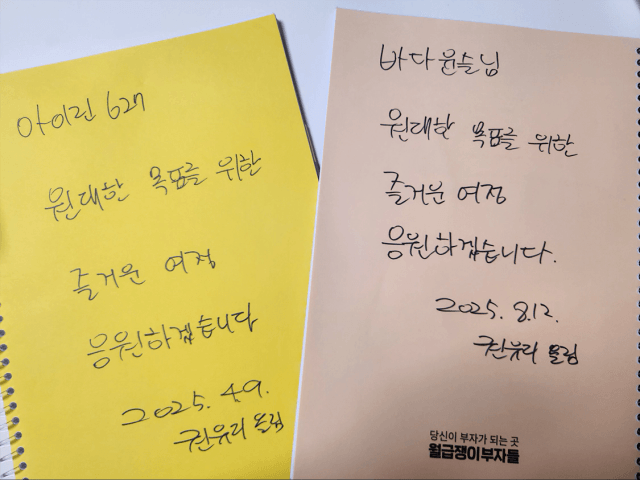 아이린 627
원대한 목표를 위한
즐거운 여정
응원하겠습니다
2025. 4.9.
권유리 올림
바다윤슬님
원대한 목표를 위한
즐거운 여정
응원하겠습니다.
2025. 8.12.
권유리 올림
당신이 부자가 되는 곳
월급쟁이부자들